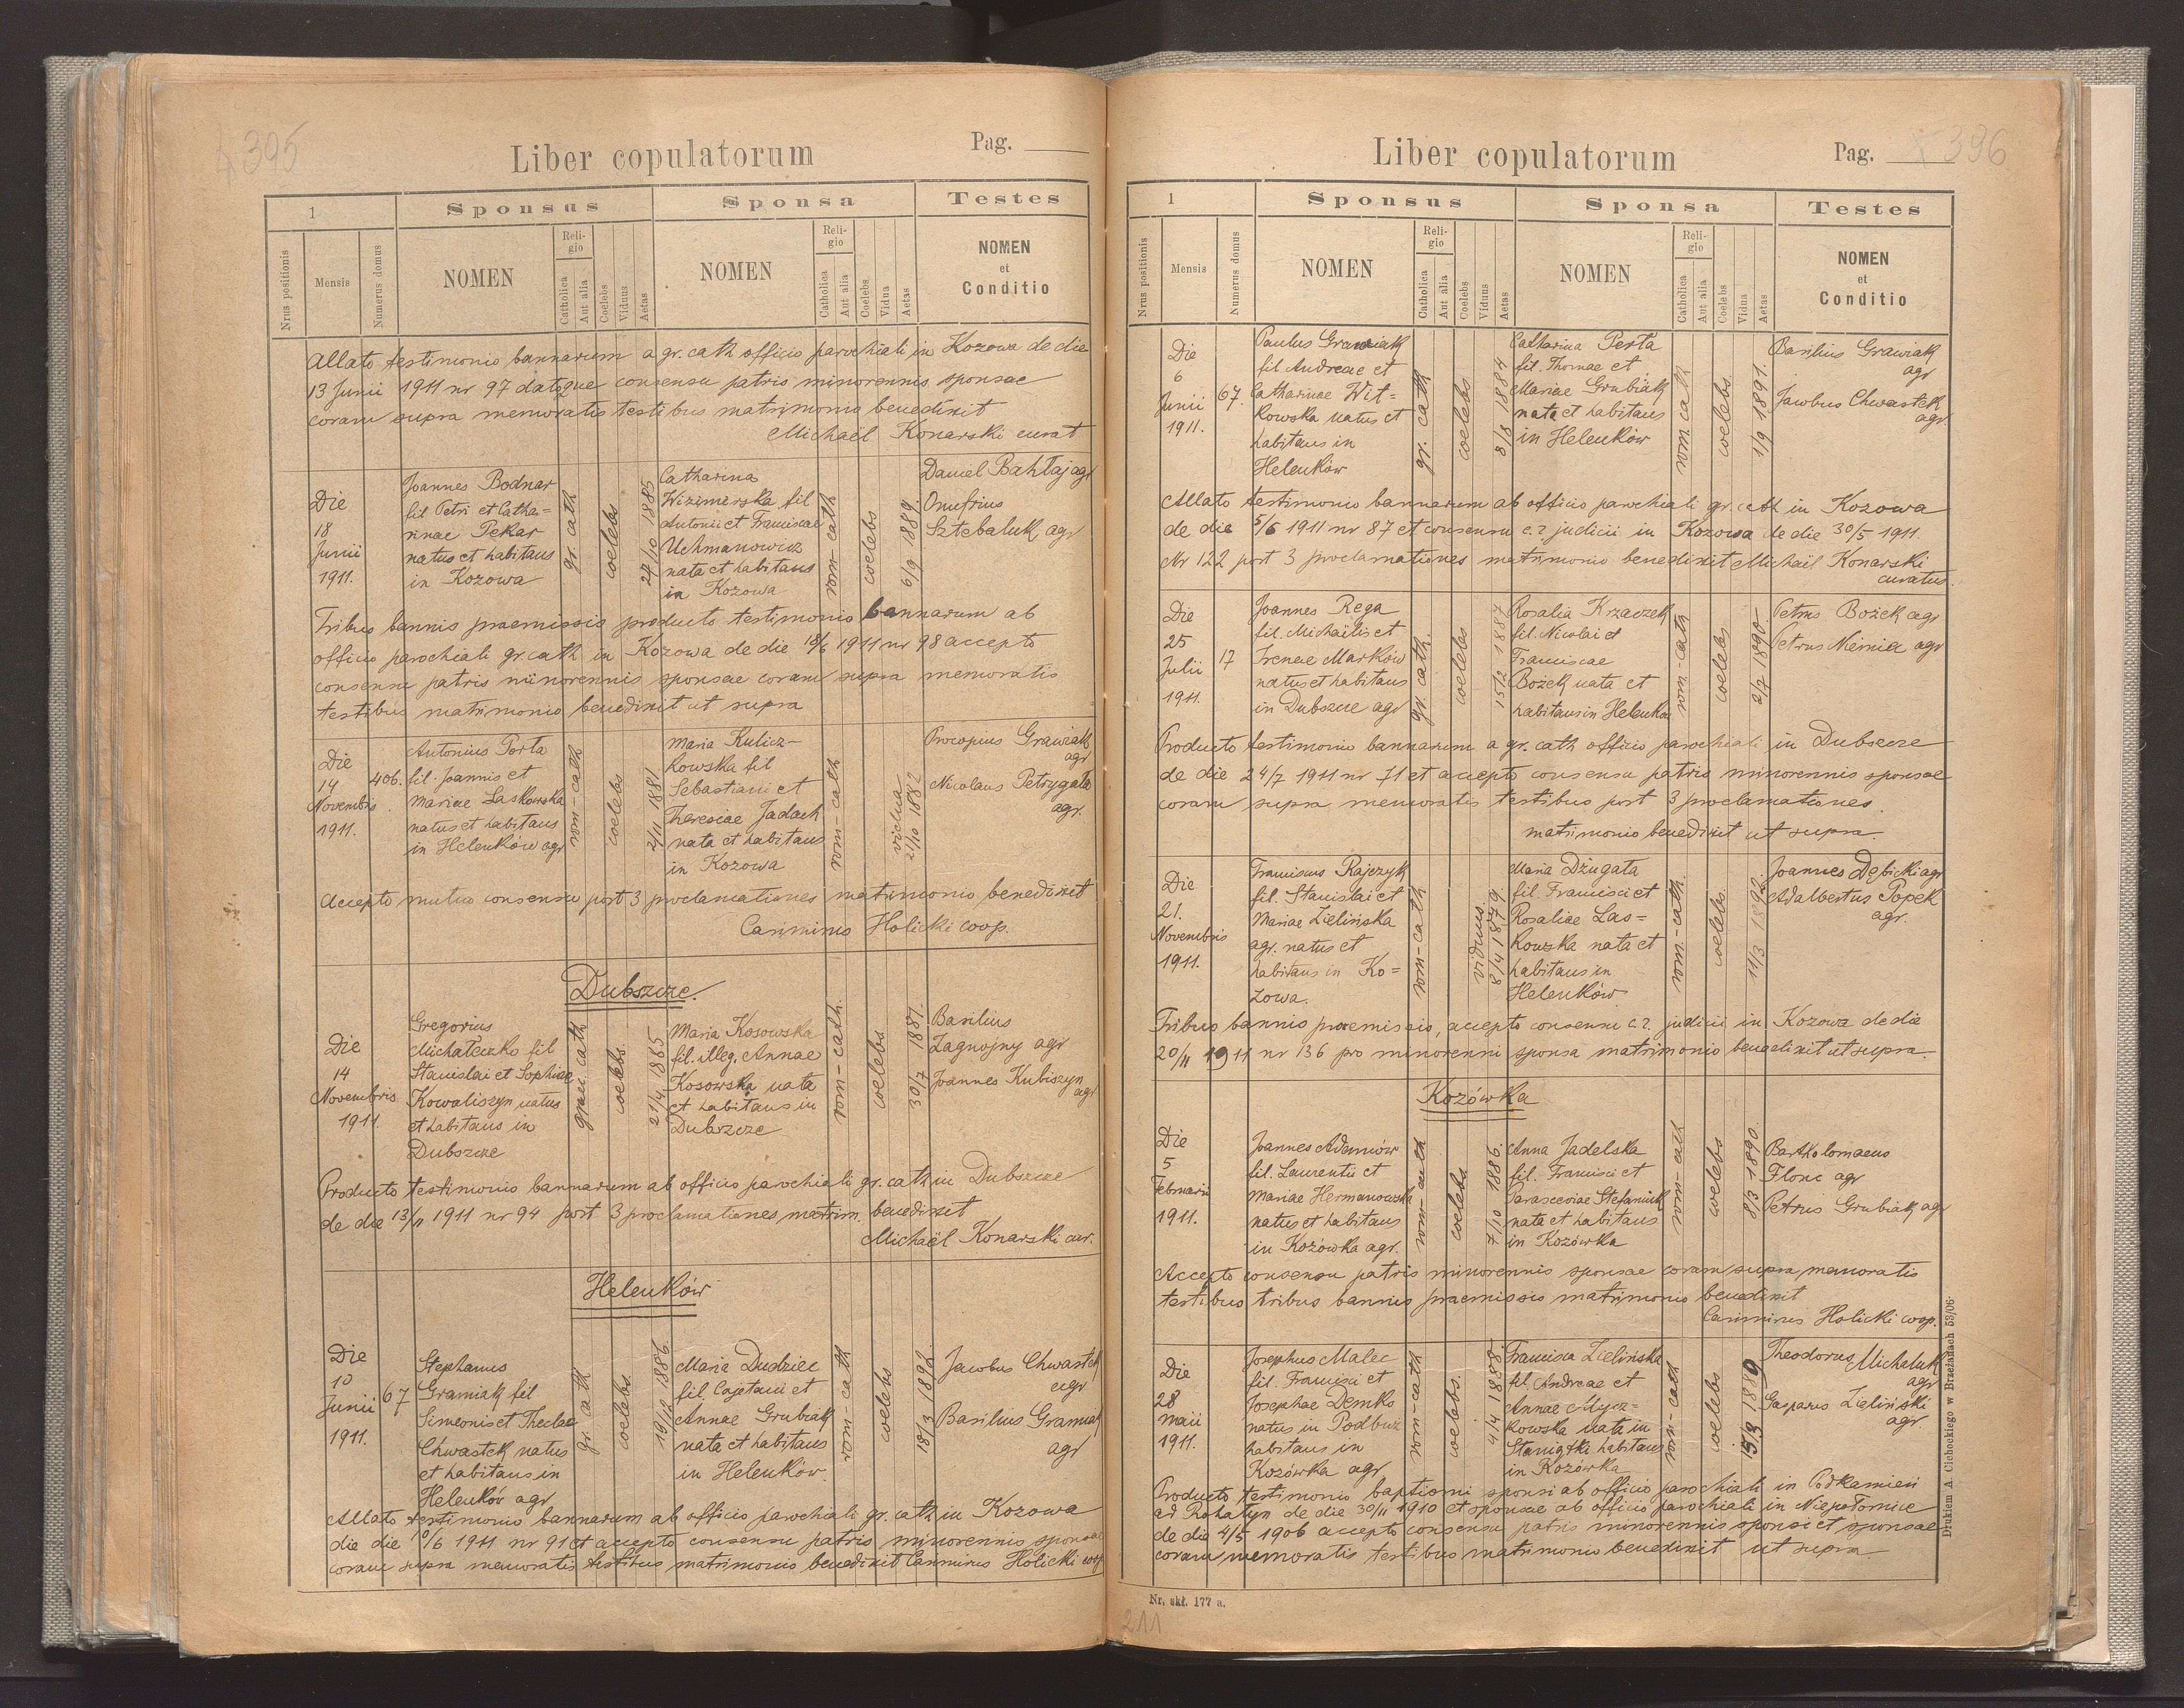 395
Liber copulatorum
Pag.
1
Sponsus
Sponsa
Testes
Nrus positionis
Mensis
Numerus domus
NOMEN
Religio
Catholica
Aut alia
Coelebs
Viduus
Aetas
NOMEN
Religio
Catholica
Aut alia
Coelebs
Vidua
Aetas
NOMEN
et
Conditio
Allato testimonio bannarum a gr. cath officio parochiali in Kozowa de die
13 Junii 1911 nr 97 datoque consensu patris minorennis sponsae
coram supra memoratis testibus matrimonio benedixit
Michaël Konarski curat
Die
18
Junii
1911.
Joannes Bodnar
fil Petri et Catha=
rinae Pekar
natus et habitans
in Kozowa
gr cath
coelebs
24/10 1885
Catharina
Wizimirska fil
Antonii et Franciscae
Uchmanowicz
nata et habitans
in Kozowa
rom-cath
coelebs
6/9 1889.
Daniel Bahłaj agr
Onufrius
Sztebaluk agr
Tribus bannis praemissis producto testimonio bannarum ab
officio parochiali gr cath in Kozowa de die 18/6 1911 nr 98 accepto
consensu patris minorennis sponsae coram supra memoratis
testibus matrimonio benedixit ut supra
Die
14
Novembris
1911.
406.
Antonius Perta
fil. Joannis et
Mariae Laskowska
natus et habitans
in Helenków agr
rom-cath
coelebs
2/11 1881
Maria Kulicz-
kowska fil
Sebastiani et
Theresiae Jadach
nata et habitans
in Kozowa
rom-cath
vidua
21/10 1882
Procopius Grawiak
agr
Nicolaus Petrygała
agr.
Accepto mutuo consensu post 3 proclamationes matrimonio benedixit
Casimirus Holicki coop.
Dubszcze.
Die
14
Novembris
1911.
Gregorius
Michałeczko fil
Stanislai et Sophiae
Kowaliszyn natus
et habitans in
Dubszcze
graei. cath
coelebs.
21/4 1885
Maria Kosowska
fil. illeg. Annae
Kosowska nata
et habitans in
Dubszcze
rom-cath.
coelebs
30/7 1887.
Basilius
Zagwojny agr
Joannes Kubiszyn
agr
Producto testimonio bannarum ab officio parochiali gr. cath in Dubszcze
de die 13/11 1911 nr 94 post 3 proclamationes matrim. benedixit
Michaël Konarski cur.
Helenków
Die
10
Junii
1911.
67
Stephanus
Gramiak fil
Simeonis et Theclae
Chwastek natus
et habitans in
Helenków agr
gr. cath
coelebs.
19/12 1886.
Maria Dudziec
fil. Cajetani et
Annae Grubiak
nata et habitans
in Helenków.
rom-cath
coelebs
18/3 1892
Jacobus Chwastek
agr
Basilius Gramiak
agr
Allato testimonio bannarum ab officio parochiali gr. cath in Kozowa
die die 10/6 1911 nr 91 et accepto consensu patris minorennis sponsae
coram supra memoratis testibus matrimonio benedixit Casimirus Holicki coop
396
Liber copulatorum
Pag.
1
Sponsus
Sponsa
Testes
Nrus positionis
Mensis
Numerus domus
NOMEN
Religio
Catholica
Aut alia
Coelebs
Viduus
Aetas
NOMEN
Religio
Catholica
Aut alia
Coelebs
Vidua
Aetas
NOMEN
et
Conditio
Die
6
Junii
1911.
67.
Paulus Grawiak
fil Andreae et
Catharinae Wit=
kowska natus et
habitans in
Helenków
gr. cath
coelebs
8/8 1884
Catharina Perta
fil. Thomae et
Mariae Grubiak
nata et habitans
in Helenków
rom. cath
coelebs.
1/9 1891.
Basilius Grawiak
agr
Jacobus Chwastek
agr
Allato testimonio bannarum ab officio parochiali gr. cath in Kozowa
de die 5/6 1911 nr 87 et consensu c.r. judicii in Kozowa de die 30/5 1911.
Nr 122 post 3 proclamationes matrimonio benedixit Michaël Konarski
curatus.
Die
25
Julii
1911.
17
Joannes Rega
fil. Michaëlis et
Irenae Marków
natus et habitans
in Dubszcze agr
gr. cath.
coelebs
15/2 1887
Rosalia Krzaczek
fil. Nicolai et
Franciscae
Bożek nata et
habitans in Helenków
rom-cath
coelebs
2/7 1890
Petrus Bożek agr
Petrus Niemiec agr
Producto testimonio bannarum a gr. cath officio parochiali in Dubszcze
de die 24/7 1911 nr 71 et accepto consensu patris minorennis sponsae
coram supra memoratis testibus post 3 proclamationes
matrimonio benedixit ut supra
Die
21.
Novembris
1911.
Franciscus Rajczyk
fil. Stanislai et
Mariae Zielińska
agr. natus et
habitans in Ko=
zowa.
rom-cath
viduus.
8/4 1879.
Maria Dżugała
fil. Francisci et
Rosaliae Las=
kowska nata et
habitans in
Helenków
rom.-cath.
coelebs.
11/3 1892.
Joannes Dębicki agr
Adalbertus Popek
agr.
Tribus bannis praemissis, accepto consensu c.r. judicii in Kozowa de die
20/11 1911 nr 136 pro minorenni sponsa matrimonio benedixit ut supra.
Kozówka
Die
5
Februarii
1911.
Joannes Adamiów
fil. Laurentii et
Mariae Hermanowska
natus et habitans
in Kozówka agr.
rom-cath
coelebs
7/10 1886.
Anna Jadelska
fil. Francisci et
Parasceviae Stefaniuk
nata et habitans
in Kozówka
rom-cath
coelebs
8/3 1890.
Bartholomaeus
Flonc agr
Petrus Grubiak agr
Accepto consensu patris minorennis sponsae coram supra memoratis
testibus tribus bannis praemissis matrimonio benedixit
Casimirus Holicki coop.
Die
28
Maii
1911.
Josephus Malec
fil. Francisci et
Josephae Demko
natus in Podbuż
habitans in
Kozówka agr
rom-cath
coelebs.
4/4 1888
Francisca Zielińska
fil. Andreae et
Annae Mycz=
kowska nata in
Staniątki habitans
in Kozówka
rom-cath
coelebs
15/9 1889
Theodorus Michaluk
agr
Gasparus Zieliński
agr.
Producto testimonio baptismi sponsi ab officio parochiali in Podkamień
ad Rohatyn de die 30/11 1910 et sponsae ab officio parochiali in Niepołomice
de die 4/5 1906 accepto consensu patris minorennis sponsi et sponsae
coram memoratis testibus matrimonio benedixit ut supra
Drukiem A. Cichockiego w Brzeżanach 53/06.
Nr. skł. 177 a.
211